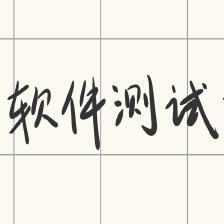 软件测试